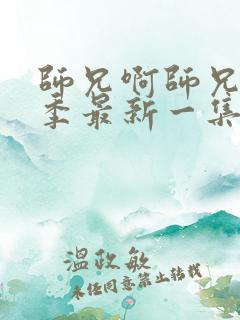 師兄啊師兄
季最新一集
溫政敏
未经同意禁止转载